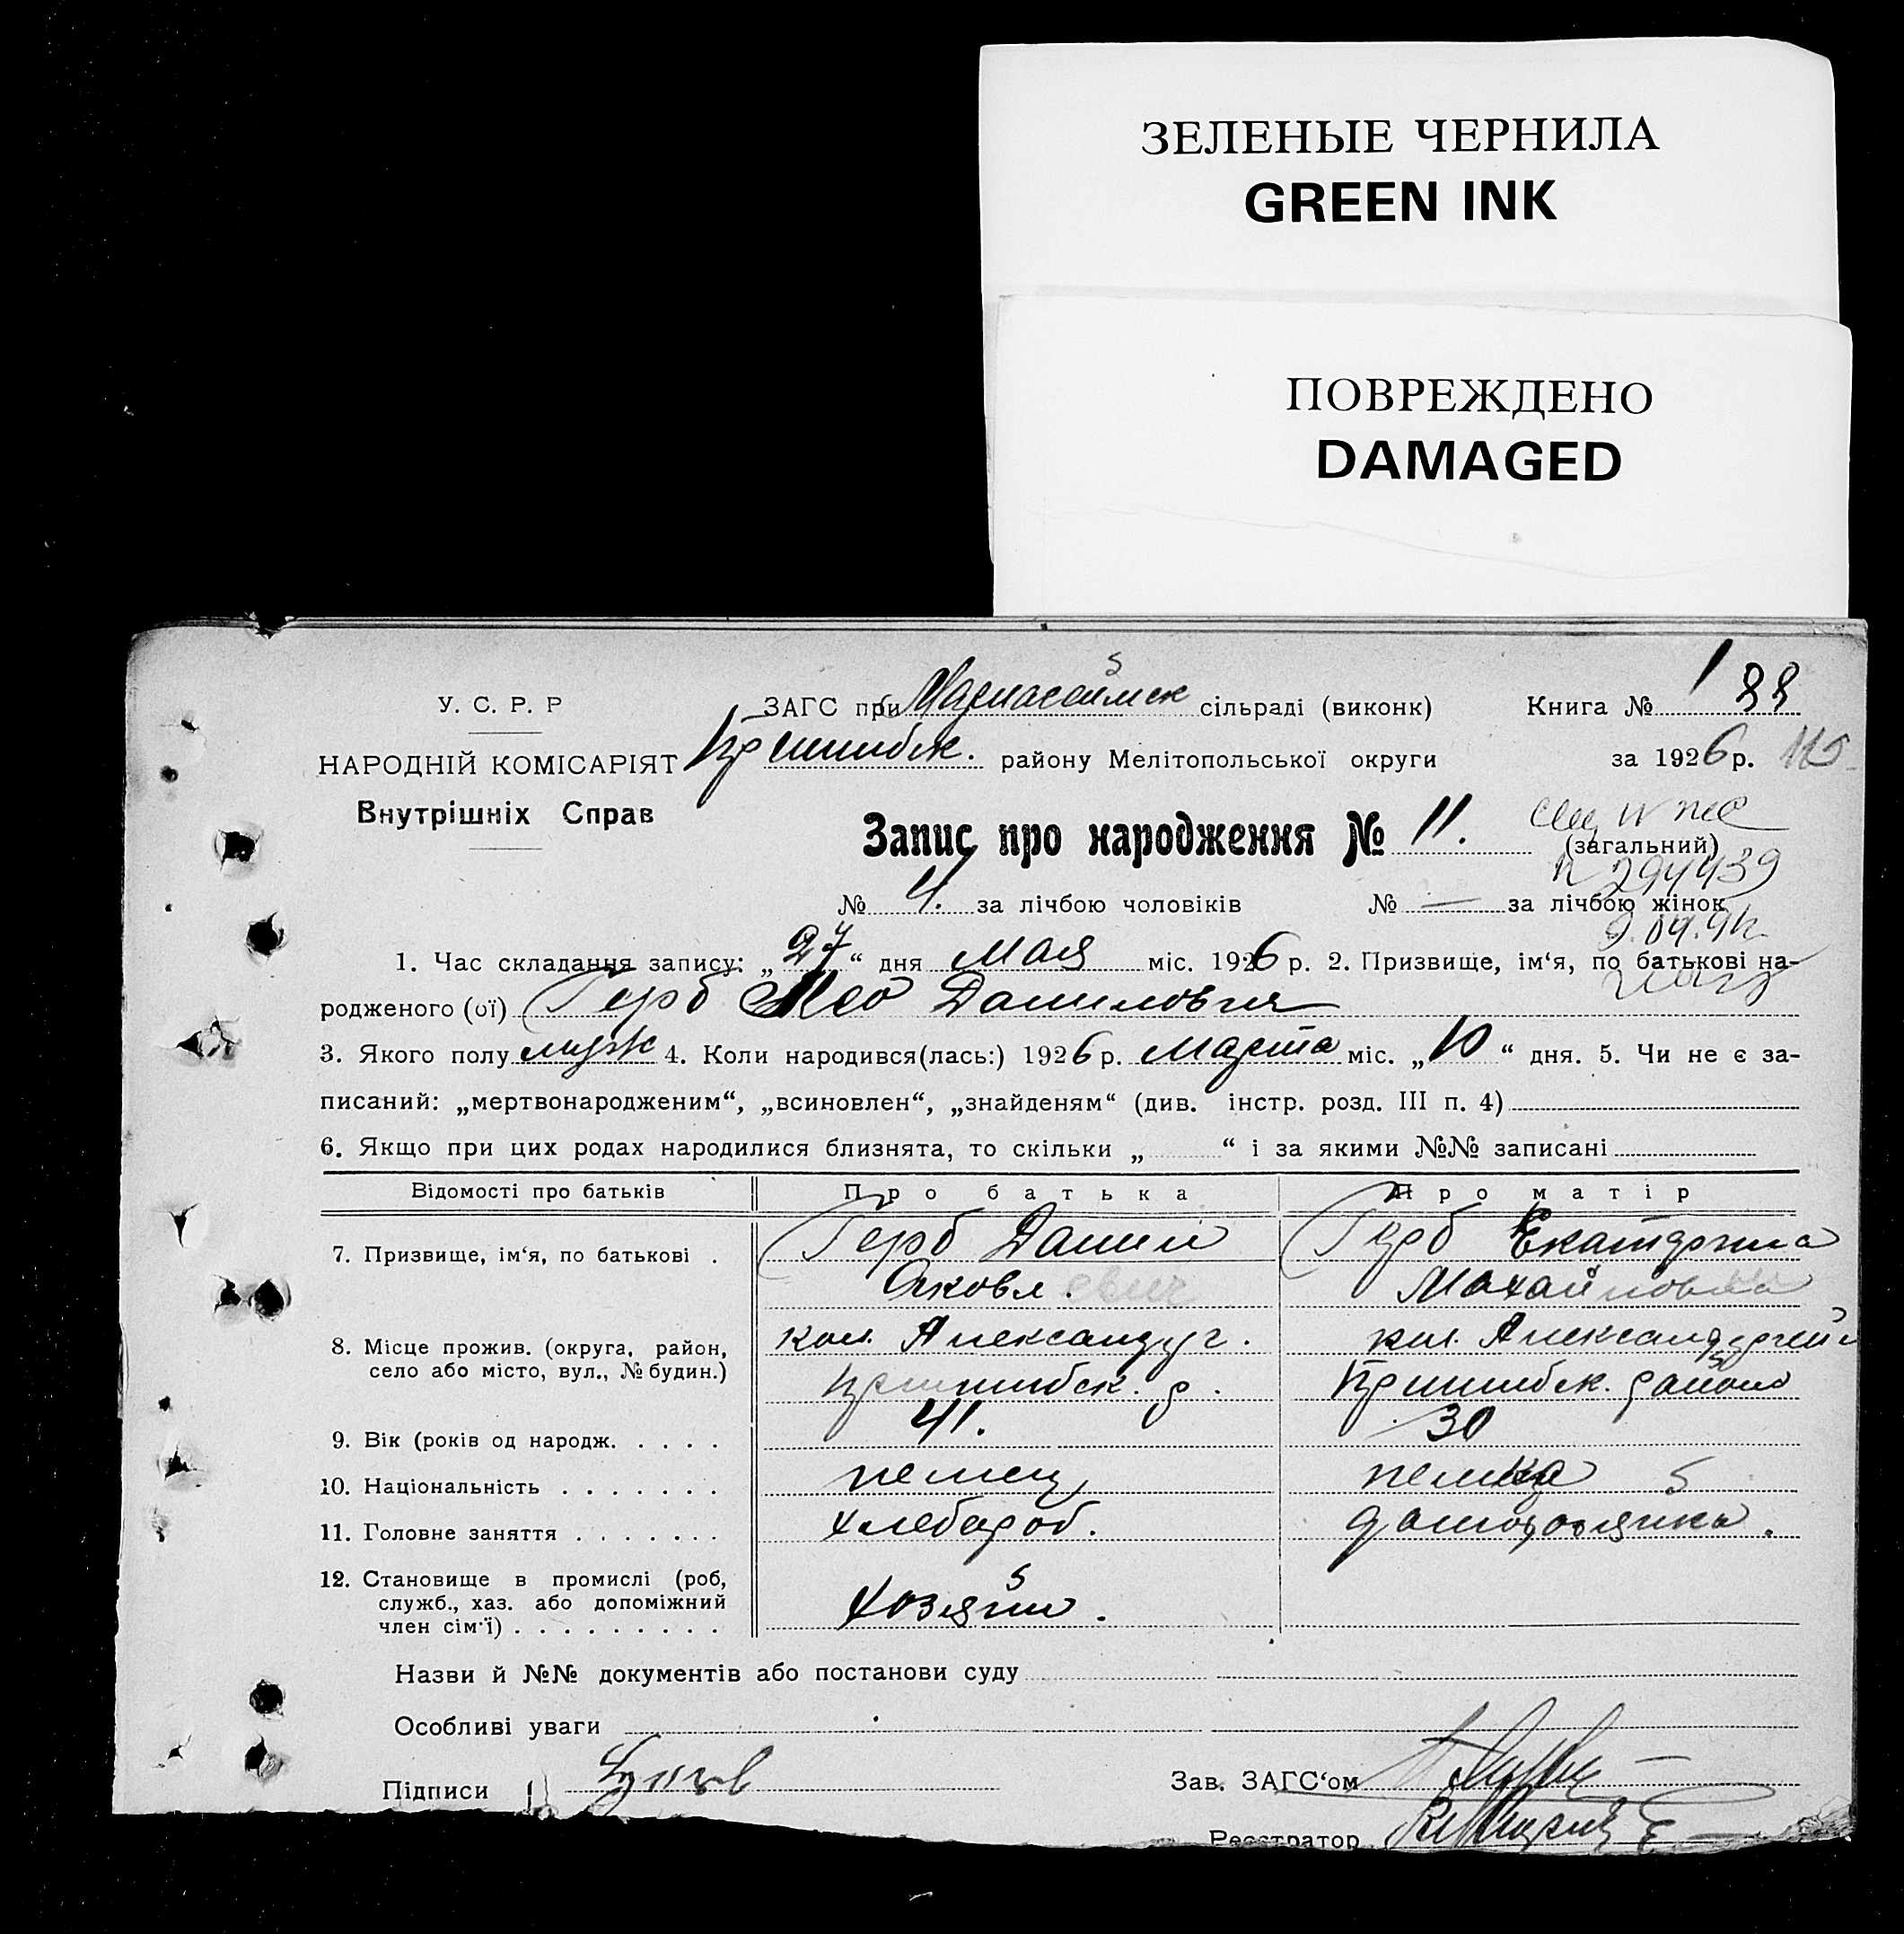 ЗЕЛЕНЫЕ ЧЕРНИЛА
GREEN INK
ПОВРЕЖДЕНО
DAMAGED
У. С. Р. Р
ЗАГС при сільраді (виконк) Книга № 88
НАРОДНІЙ КОМІСАРІЯТ Пришибск. району Мелітопольської округи за 1926 р.
Внутрішніх Справ
Запис про народження № 11. (загальний)
№ 4. за лічбою чоловіків № — за лічбою жінок
1. Час складання запису: „27“ дня Мая міс. 1926 р. 2. Призвище, ім‘я, по батькові на-
родженого (ої) Герб Лео Данилович
3. Якого полу муж 4. Коли народився(лась:) 1926 р. Марта міс. „10“ дня. 5. Чи не є за-
писаний: „мертвонародженим“, „всиновлен“, „знайденям“ (див. інстр. розд. III п. 4)
6. Якщо при цих родах народилися близнята, то скільки „ “ і за якими №№ записані
Відомості про батьків Про батька Про матір
7. Призвище, ім‘я, по батькові . Герб Данил Герб Екатерина
Яковл.евич Михайловна
8. Місце прожив. (округа, район, кол. кол.
село або місто, вул., № будин.) Пришибск. р. Пришибск. района
9. Вік (років од народж. . . . . 41. 30
10. Національність . . . . . . . немец немка
11. Головне заняття . . . . . . . хлебороб. домохозяйка.
12. Становище в промислі (роб,
служб., хаз. або допоміжний хозяйин.
член сім‘ї) . . . . . . . . .
Назви й №№ документів або постанови суду
Особливі уваги
Підписи Зав. ЗАГС‘ом
Реєстратор